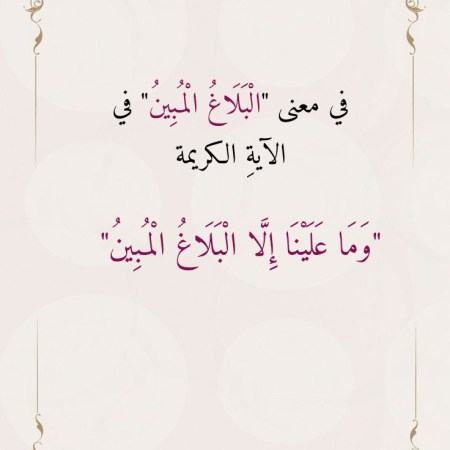 في معنى "الْبَلَاغُ الْمُبِينُ" في
الآيةِ الكريمة
"وَمَا عَلَيْنَا إِلَّا الْبَلَاغُ الْمُبِينُ"